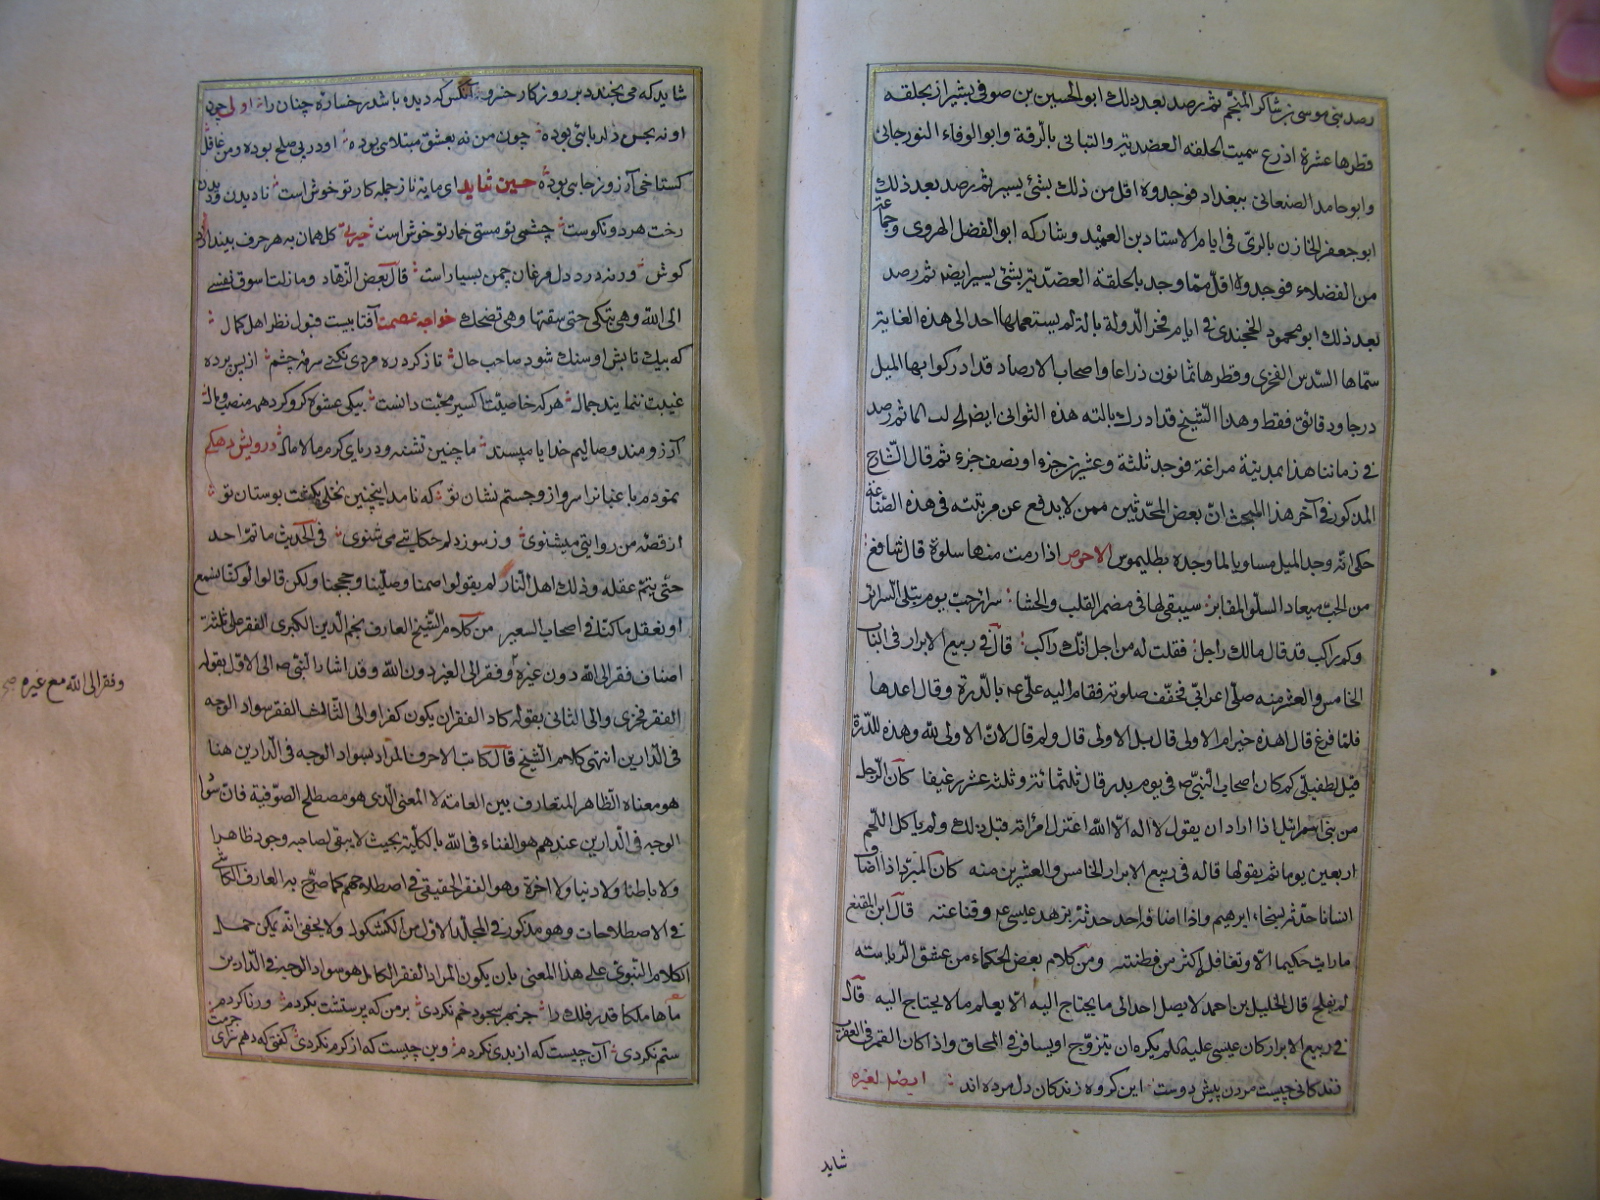 رصد بنی موسی بن شاکر المنجم ثم رصد بعد ذلك ابو الحسین بن صوفی بشیراز بحلقه
قطرها عشرة اذرع سمیت الحلقه العضدیة والتبانی بالرقة وابو الوفاء النورجانی
وابو حامد الصنعانی ببغداد فوجدوه اقل من ذلك بشئ یسیر ثم رصد بعد ذلك
ابو جعفر الخازن بالری فی ایام الاستاد بن العمید وشارکه ابو الفضل الهروی وجماعة
من الفضلاء فوجدوه اقل مما وجد بالحلقة العضدیة بشئ یسیر ایضا ثم رصد
بعد ذلك ابو محمود الخجندی فی ایام فخر الدولة بالة لم یستعملها احد الی هذه الغایة
سماها السدس الفخری وقطرها ثمانون ذراعا واصحاب الارصاد قد ادرکوا بها المیل
درجا ودقائق فقط وهذا الشیخ قد ادرك بالته هذه الثوانی ایضا ثم رصد
فی زماننا هذا بمدینة مراغة فوجد ثلثة وعشرین جزءا ونصف جزء ثم قال الشارح
المذکور فی آخر هذا المبحث ان بعض المحدثین ممن لا یدفع عن مرتبته فی هذه الصناعة
حکی انه وجد المیل مساویا لما وجده بطلیموس الاحوص اذا رمت منها سلوة قال شافع
من الحب میعاد السلو المقابر سیبقی لها فی مضمر القلب والحشا سرائر حب یوم تبلی السرائر
وکم راکب قد قال مالك راجل فقلت له من اجل انك راکب قال فی ربیع الابرار فی الباب
الخامس والعشر منه صلی اعرابی فخفف صلوته فقام الیه علی ع بالدرة وقال اعدها
فلما فرغ قال اهذه خیر ام الاولی قال بل الاولی قال ولم قال لان الاولی لله وهذه للدرة
قیل لطفیلی کم کان اصحاب النبی ص فی یوم بدر قال ثلثمائة وثلثه عشر رغیفا کان الرجل
من بنی اسرائیل اذا اراد ان یقول لا اله الا الله اعتزل امرأته قبل ذلك ولم یأکل اللحم
اربعین یوما ثم یقولها قاله فی ربیع الابرار الخامس والعشرین منه کان المبرد اذا اضاف
انسانا حدثه بسخاء ابرهیم واذا اضافه احد حدثه بزهد عیسی ع وقناعته قال ابن المقنع
ما رایت حکیما الا وتغافله اکثر من فطنته ومن کلام بعض الحکماء من عشق الریاسة
لم یفلح قال الخلیل بن احمد لا یصل احد الی ما یحتاج الیه الا بعلم ما لا یحتاج الیه قال
فی ربیع الابرار کان عیسی علیه السلام یکره ان یتزوج او یسافر فی المحاق واذا کان القمر فی العقرب
زندکانی چیست مردن پیش دوست این کروه زندکان دل مرده اند ایضا لغیره
شاید
شاید که می بخندد بر روزکار خسرو آنکس که دیده باشد رخساره چنان را اولی چون
او نه بحسن دلربائی بوده چون من نه بعشق مبتلائی بوده او در پی صلح بوده ومن غافل
کستاخی آرزو زجائی بوده حسین ثنائی ای مایه ناز جمله کار تو خوش است نادیدن ودیدن
رخت هر دو نکوست چشمی تو مستی خمار تو خوش است کل همان به هر حرف
کوش ورنه درد دل مرغان چمن بسیار است قال بعض الزهاد وما زلت اسوق نفسی
الی الله وهی تبکی حتی سقتها وهی تضحك خواجه عصمت آفتابیست قبول نظر اهل کمال
که بیك تابش او سنك شود صاحب حال تا ز کرد ره مردی نکنی سرمه چشم از پس پرده
غیبت ننمایند جمال هر که خاصیت اکسیر محبت دانست بیکی عشوه کرو کرد همه منصب ومال
آرزومند وصالیم خدایا مپسند ما چنین تشنه ودریای کرم مالامال درویش دهکی
نمودم باغبانرا سرو از وجستم نشان تو که نامد اینچنین نخلی بکفت بوستان تو
از قصه من روایتی میشنوی وز سوز دلم حکایتی می شنوی فی الحدیث ما تم احد
حتی یتم عقله وذلك اهل النار لم یقولوا صمنا وصلینا وحججنا ولکن قالوا لو کنا نسمع
او نعقل ما کنا فی اصحاب السعیر من کلام الشیخ العارف نجم الدین الکبری الفقر علی ثلثة
اصناف فقر الی الله دون غیره وفقر الی الغیر دون الله وقد اشار النبی ص الی الاول بقوله
وفقر الی الله مع غیره صح
الفقر فخری والی الثانی بقوله کاد الفقر ان یکون کفرا والی الثالث الفقر سواد الوجه
فی الدارین انتهی کلام الشیخ قال کاتب الاحرف المراد بسواد الوجه فی الدارین هنا
هو معناه الظاهر المتعارف بین العامة لا المعنی الذی هو مصطلح الصوفیة فان سواد
الوجه فی الدارین عندهم هو الفناء فی الله بالکلیة بحیث لا یبقی لصاحبه وجود ظاهرا
ولا باطنا ولا دنیا ولا آخرة وهو الفقر الحقیقی فی اصطلاحهم کما صرح به العارف الکاشی
فی الاصطلاحات وهو مذکور فی المجلد الاول من الکشکول ولا یخفی انه یمکن حمل
الکلام النبوی علی هذا المعنی بان یکون المراد الفقر الکامل هو سواد الوجه فی الدارین
ماها ملکا قدر فلك را جز بهر سجود خم نکردی بر من که پرستشت بکردم ورنا کردم
ستم نکردی آن چیست که از بدی نکردم وین چیست که از کرم نکردی کفتی که دهم